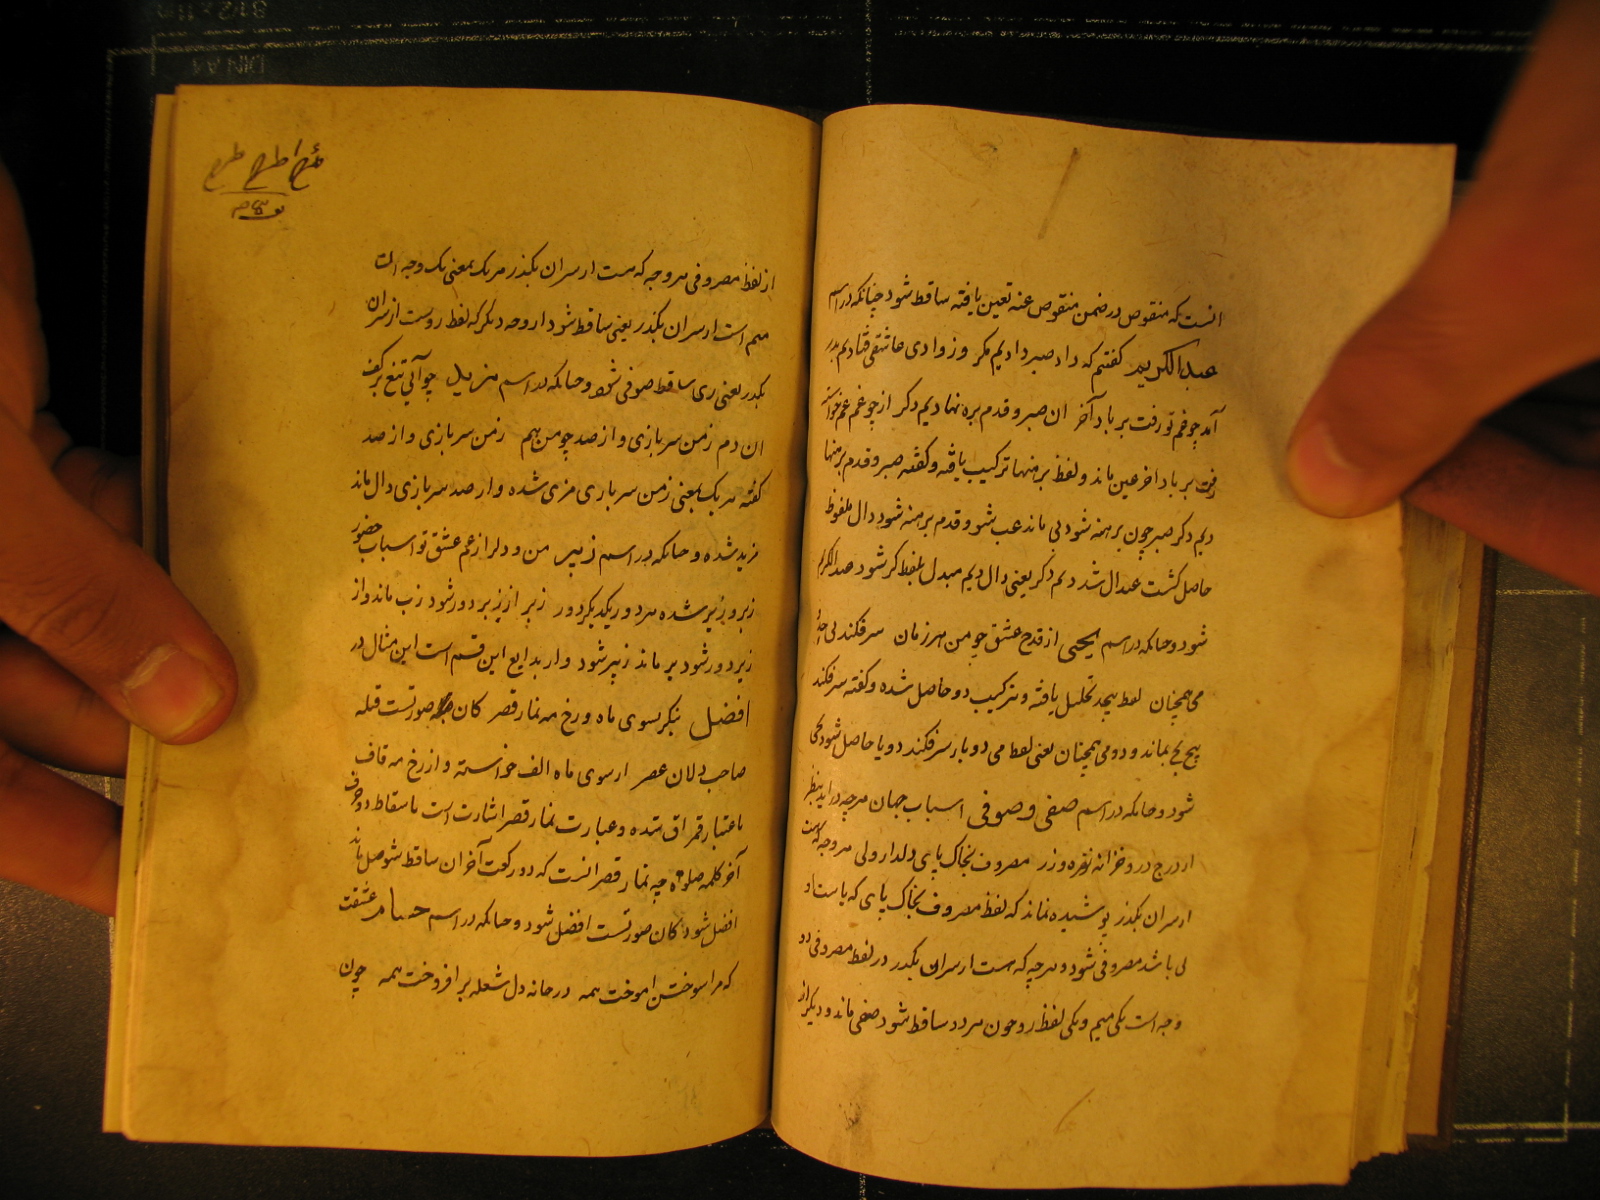 انست که منقوص در ضمن منقوص عنه تعین یافته ساقط شود چنانکه در اسم
عبد الکریم گفتم که داد صبر دادیم مکر وز وادی عاشقی فتادیم بدر
آمد چو غم تو رفت بر باد آخر ان صبر و قدم بره نهادیم دکر از چو غم غم خواسته
رفت بر باد اخر عین ماند و لفظ برهنها ترکیب یافته و کفته صبر و قدم برهنها
دیم دکر صبر چون برهنه شود بی ماند عب شود و قدم برهنه شود دال ملفوظ
حاصل کشت عبدال شد دیم دکر یعنی دال دیم مبدل بلفظ کر شود عبد الکریم
شود و چنانکه در اسم یحیی از قدح عشق چو من هر زمان سر فکند بی
می همچنان لفظ تحلیل یافته و ترکیب دو حاصل شده و کفته سر فکند
هیچ بماند و دو می همچنان یعنی لفظ می دو بار سر فکند دو یا حاصل شود یحیی
شود و چنانکه در اسم صفی و صوفی اسباب جهان هرچه در اید بنظر
از درج در و خزانه نقره و زر مصروف بخاک پای دلدار ولی هر وجه که هست
از سران بکذر پوشیده نماند که لفظ مصروف بخاک پای که یا ست او
لی باشد مصروفی شود و هرچه که هست از سران بکذر در لفظ مصروفی دو
وجه است یکی میم و یکی لفظ رو چون هر دو ساقط شود صفی ماند و دیکر از
طرح اطرح طرح
از لفظ مصروفی هر وجه که هست از سران بکذر هر یک بمعنی یک وجه است
میم است از سران بکذر یعنی ساقط شود از وجه دیکر که لفظ روست از سران
بکذر یعنی ری ساقط صوفی شود و چنانکه در اسم مزید چو آئی تیغ بر کف
ان دم ز من سر بازی و از صد چو من هم ز من سر بازی و از صد
کفته هر یک بمعنی ز من سر بازی مزی شده و از صد سر بازی دال ماند
مزید شده و چنانکه در اسم زبیر من و دلرا ز غم عشق تو اسباب حضور
زبر و زیر شده هر دو ز یکدیکر دور زبر از زیر دور شود زب ماند و از
زیر دور شود یر ماند زبیر شود و از بدایع این قسم است این مثال در
افضل بنکر بسوی ماه و رخ مه نماز قصر کان صورتست قبله
صاحب دلان عصر از سوی ماه الف خواسته و از رخ مه قاف
باعتبار قمر اق شده و عبارت نماز قصر اشارت است باسقاط دو حرف
آخر کلمه صلوة چه نماز قصر انست که دو رکعت آخر ان ساقط شود صل ماند
افضل شود کان صورتست افضل شود و چنانکه در اسم حسام عشقت
که مرا سوختن اموخت همه در خانه دل شعله بر افروخت همه چون